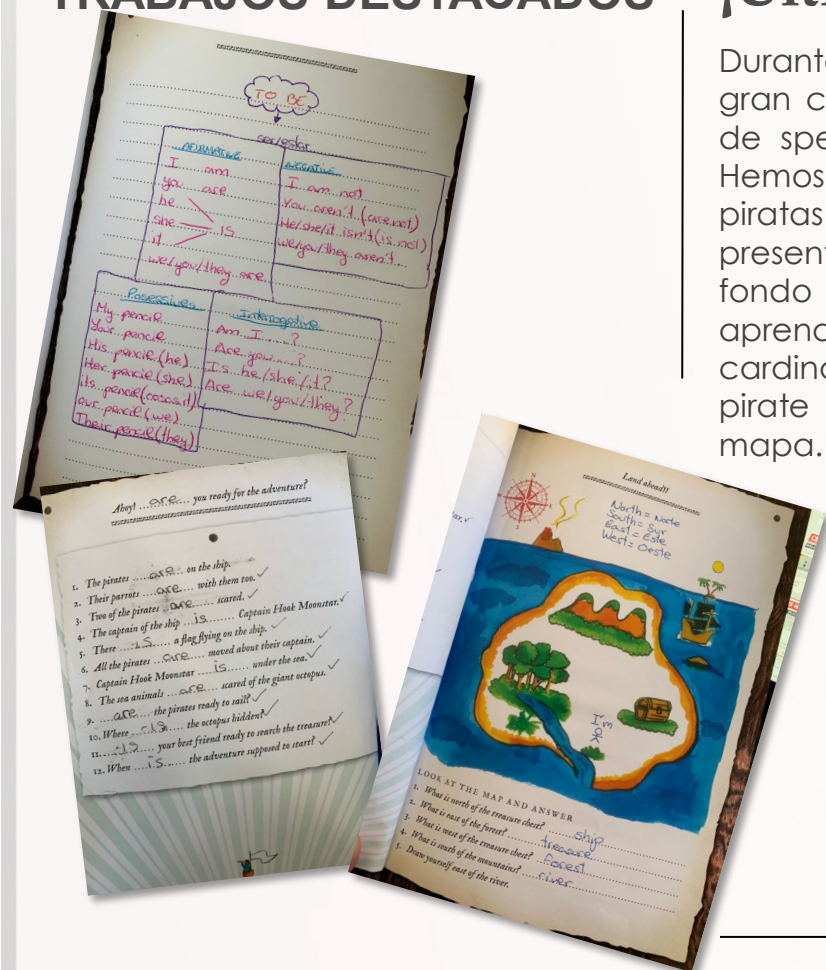 TRABAJOS DESTACADOS
TO BE
ser/estar
AFIRMATIVE
I am
you are
he
she
it
is
we/you/they are
NEGATIVE
I am not
You aren't (are not)
He/she/it isn't (is not)
we/you/they aren't
Possessives
My pencil
Your pencil
His pencil (he)
Her pencil (she)
its pencil (cosas it)
our pencil (we)
Their pencil (they)
Interrogative
Am I.....?
Are you.....?
Is he/she/it?
Are we/you/they?
Ahoy! are you ready for the adventure?
1. The pirates are on the ship.
2. Their parrots are with them too.
3. Two of the pirates are scared.
4. The captain of the ship is Captain Hook Moonstar.
5. There is a flag flying on the ship.
6. All the pirates are moved about their captain.
7. Captain Hook Moonstar is under the sea.
8. The sea animals are scared of the giant octopus.
9. are the pirates ready to sail?
10. Where is the octopus hidden?
11. is your best friend ready to search the treasure?
12. When is the adventure supposed to start?
Land ahead!!
North = Norte
South = Sur
East = Este
West = Oeste
I'm
LOOK AT THE MAP AND ANSWER
1. What is north of the treasure chest? ship
2. What is east of the forest? treasure
3. What is west of the treasure chest? forest
4. What is south of the mountains? river
5. Draw yourself east of the river.
Durant
gran c
de spe
Hemos
piratas
present
fondo
aprenc
cardina
pirate
mapa.